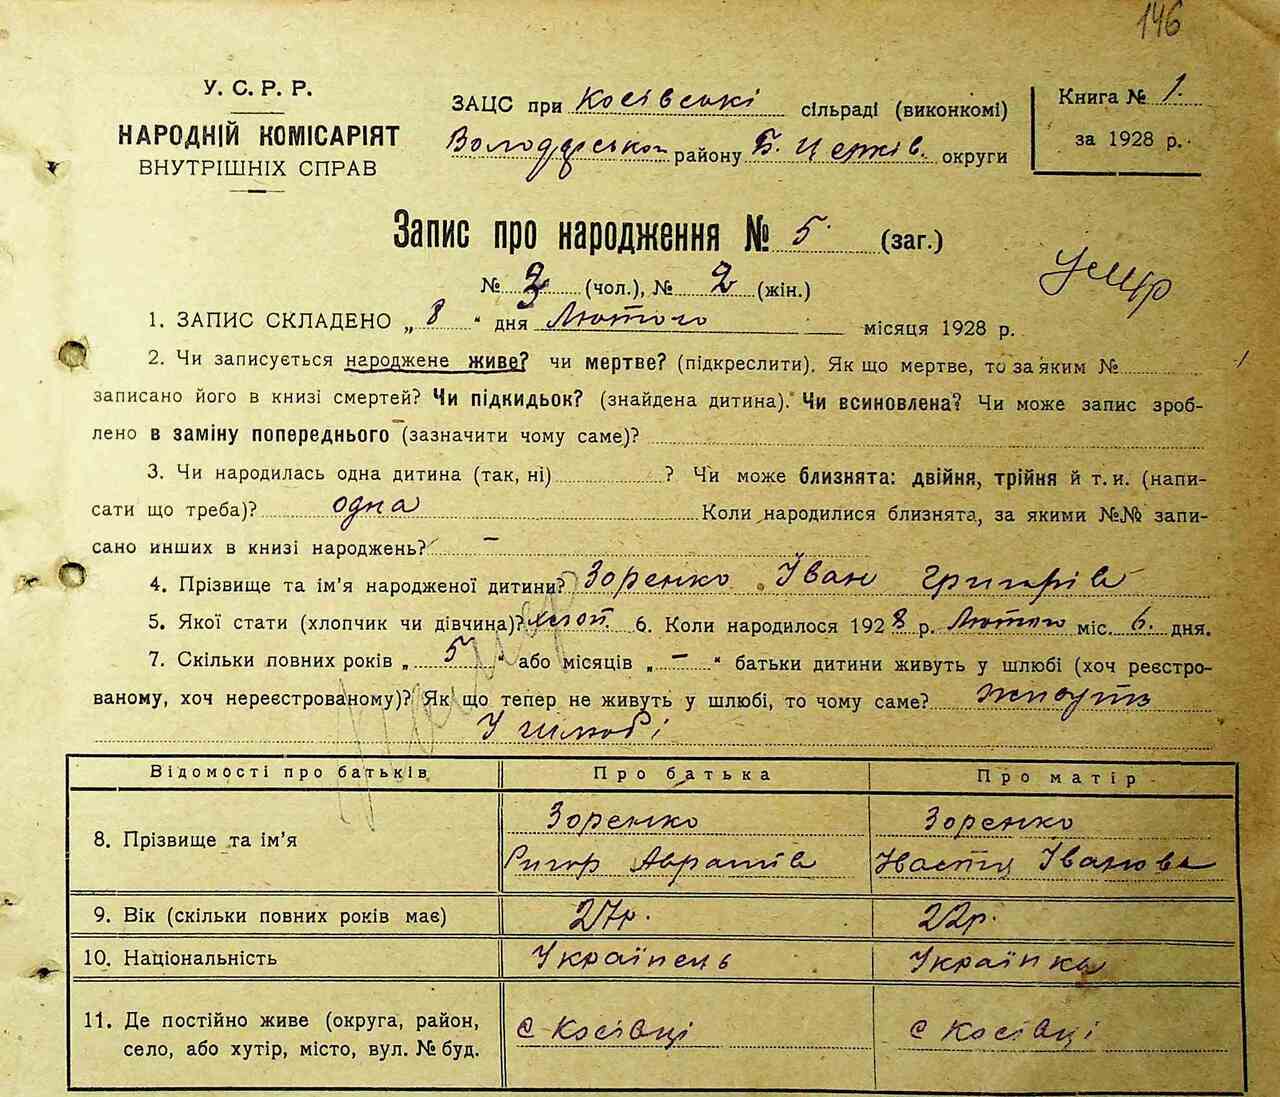 146
У. С. Р. Р.
НАРОДНІЙ КОМІСАРІЯТ
ВНУТРІШНІХ СПРАВ
ЗАЦС при Косівські сільраді (виконкомі)
Володарської району Б. Церків. округи
Книга № 1.
за 1928 р.
Запис про народження № 5. (заг.)
№ 3 (чол.), № 2 (жін.)
Умир
1. ЗАПИС СКЛАДЕНО „ 8 “ дня Лютого місяця 1928 р.
2. Чи записується народжене живе? чи мертве? (підкреслити). Як що мертве, то за яким №
записано його в книзі смертей? Чи підкидьок? (знайдена дитина). Чи всиновлена? Чи може запис зроб-
лено в заміну попереднього (зазначити чому саме)?
3. Чи народилась одна дитина (так, ні) ? Чи може близнята: двійня, трійня й т. и. (напи-
сати що треба)? одна Коли народилися близнята, за якими №№ запи-
сано инших в книзі народжень? —
4. Прізвище та ім'я народженої дитини? Зоренко Іван Григорів
5. Якої стати (хлопчик чи дівчина)? хлоп. 6. Коли народилося 1928 р. Лютого міс. 6. дня.
7. Скільки повних років „ 5 “ або місяців „ — “ батьки дитини живуть у шлюбі (хоч реєстро-
ваному, хоч нереєстрованому)? Як що тепер не живуть у шлюбі, то чому саме? живуть
У шлюбі
Відомості про батьків Про батька Про матір
8. Прізвище та ім'я Зоренко Зоренко
Ригор Аврамів Настя Іванова
9. Вік (скільки повних років має) 27р. 22р.
10. Національність Українець Українка
11. Де постійно живе (округа, район, с Косівці с Косівці
село, або хутір, місто, вул. № буд.